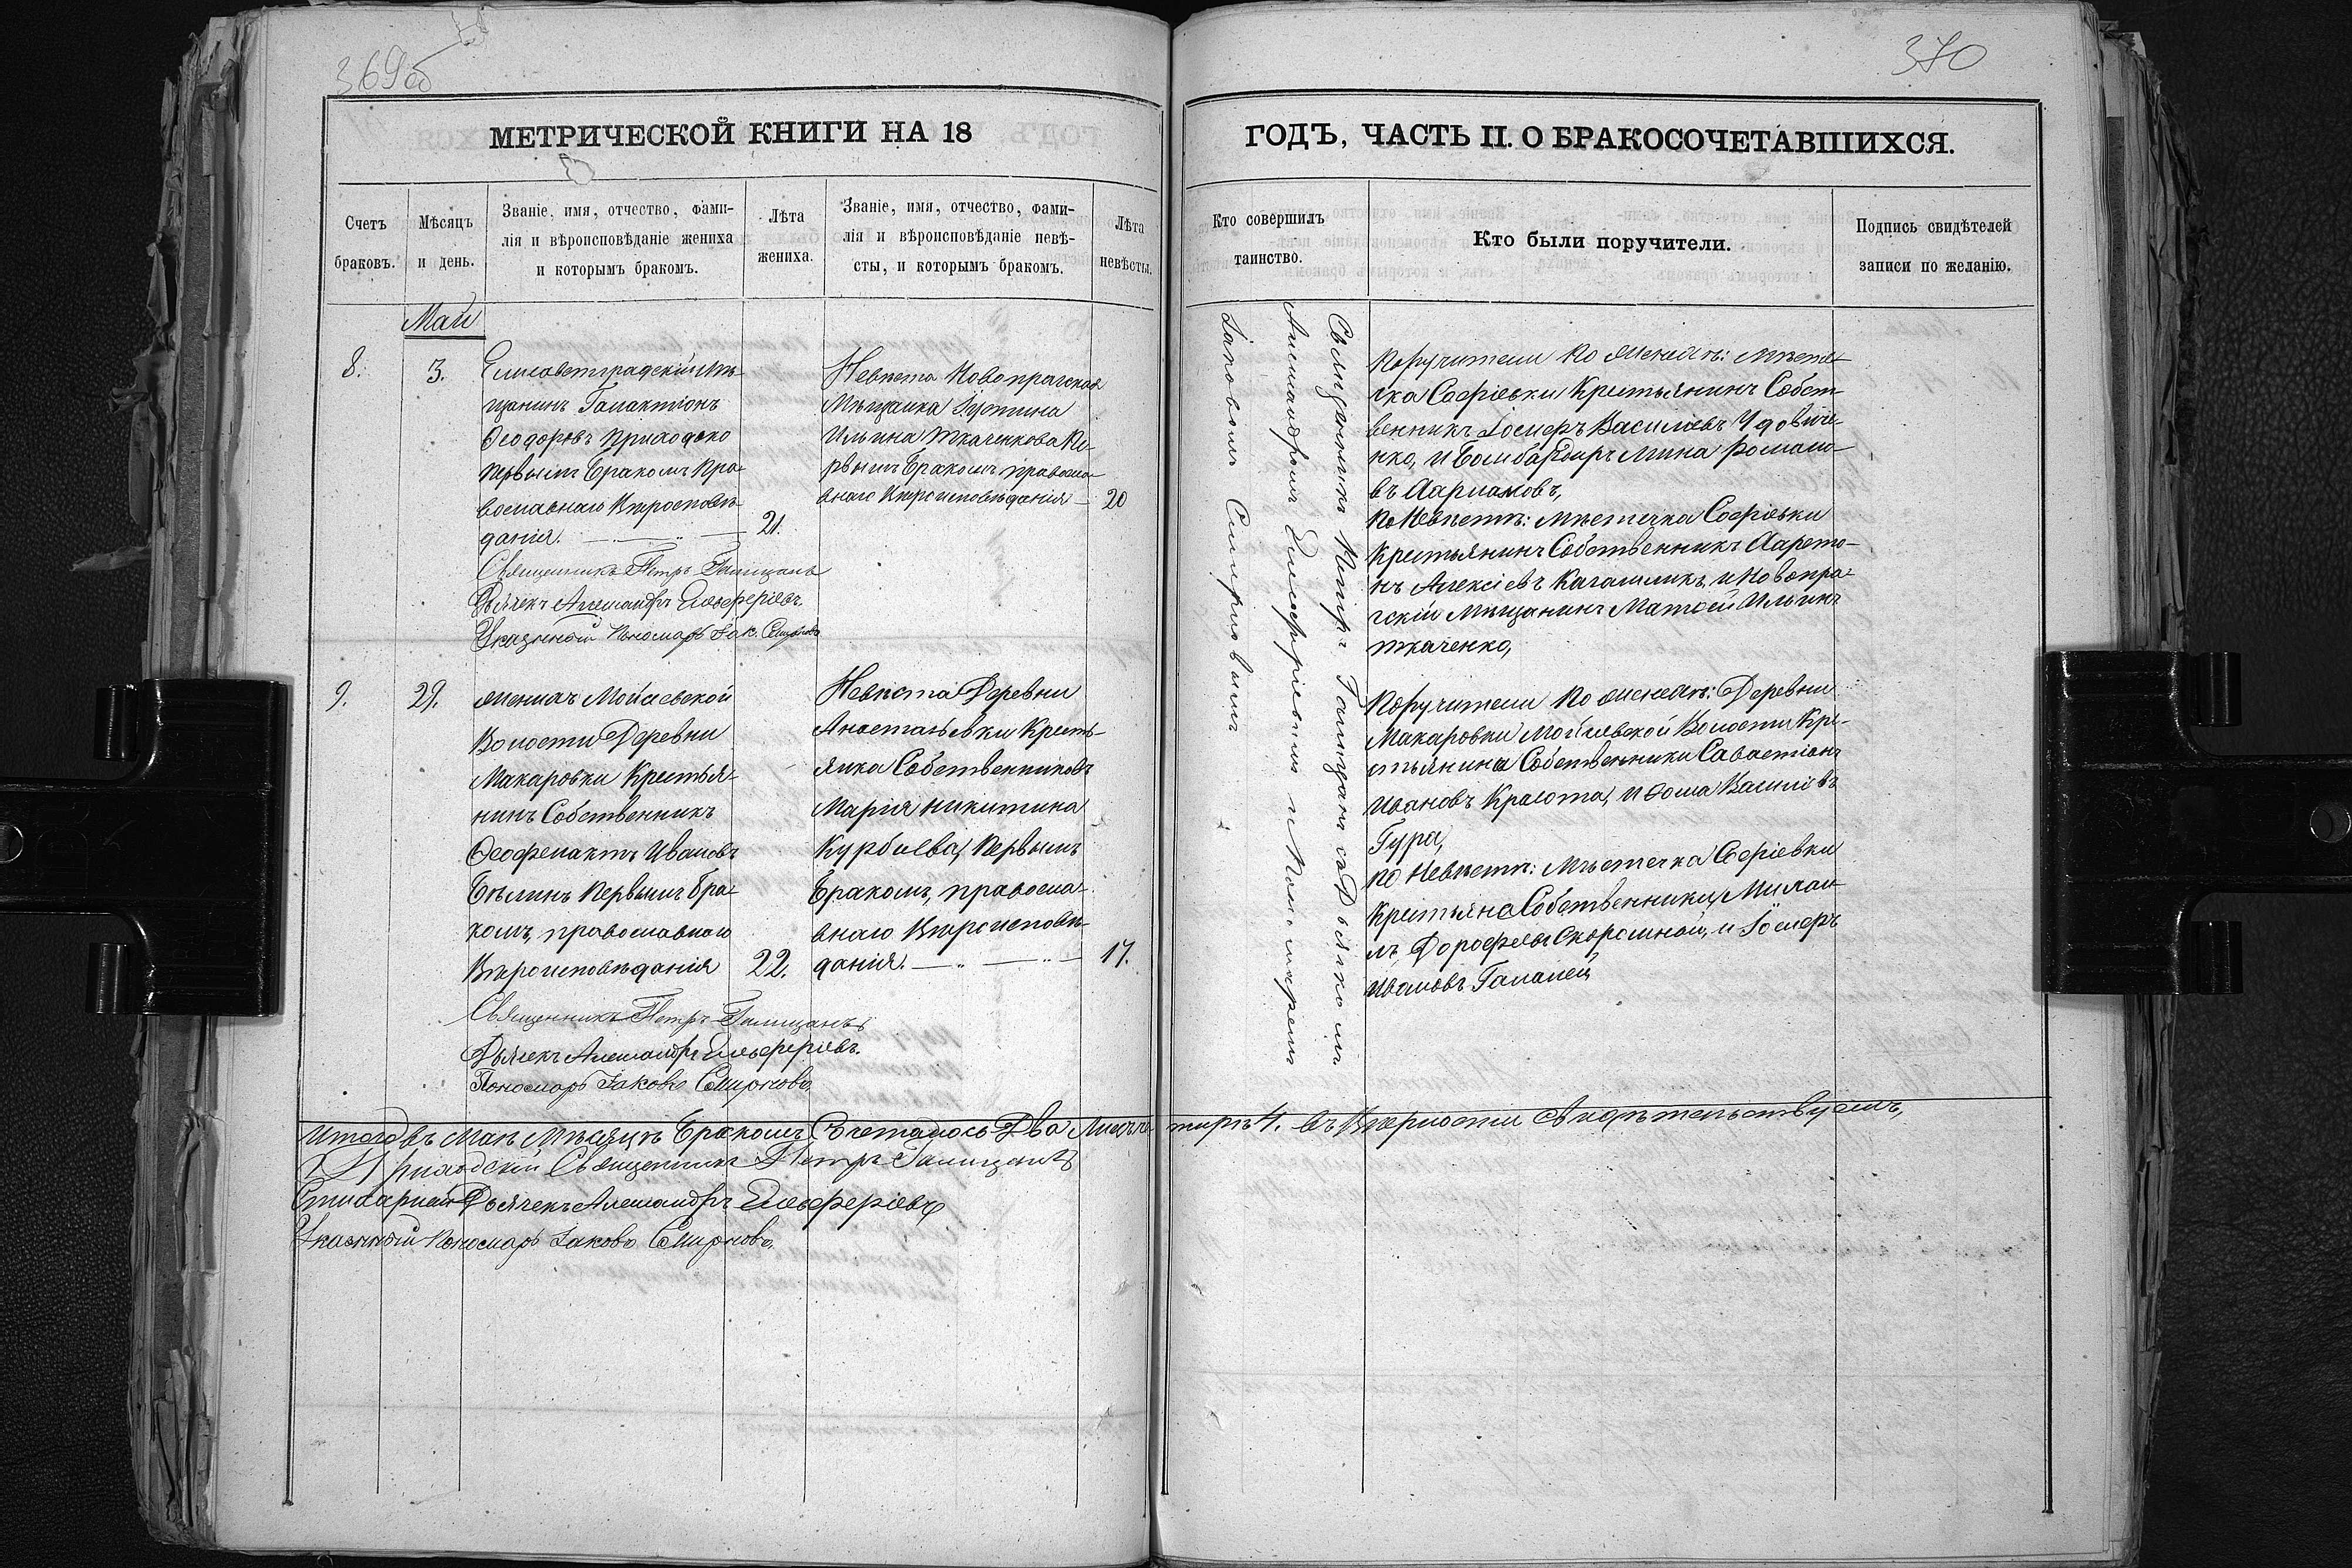 369об
370
МЕТРИЧЕСКОЙ КНИГИ НА 18
ГОДЪ, ЧАСТЬ II. О БРАКОСОЧЕТАВШИХСЯ.
Счетъ
браковъ.
Мѣсяцъ
и день.
Званіе, имя, отчество, фами-
лія и вѣроисповѣданіе жениха
и которымъ бракомъ.
Лѣта
жениха.
Званіе, имя, отчество, фами-
лія и вѣроисповѣданіе невѣ-
сты, и которымъ бракомъ.
Лѣта
невѣсты.
Кто совершилъ
таинство.
Кто были поручители.
Подпись свидѣтелей
записи по желанію.
Май
8.
3.
Елисаветградскій мѣ-
щанинъ Галактіонъ
Ѳеодоровъ Приходько
первымъ бракомъ пра-
вославнаго вѣроисповѣ-
данія.
21.
Священникъ Петръ Галицанъ
Дьячекъ Александръ Елевферіевъ.
Указнный Пономарь Іак. Смирновъ
Невѣста Новопрагская
Мѣщанка Іустина
Ильина Ткаченкова пе-
рвымъ бракомъ правосла-
внаго вѣроисповѣданія
20
Священникъ Петръ Галицанъ съ Дьячкомъ
Александромъ Елевферіевымъ и Пономаремъ
Іаковомъ Смирновымъ
Поручители по женихѣ: мѣсте-
чка Софіевки крестьянинъ собст-
венникъ Іосифъ Васильевъ Удовиче-
нко, и Бомбардиръ Мина Романо-
въ
По невѣстѣ: мѣстечка Софіевки
крестьянинъ собственникъ
Алексіевъ и Новопра-
гскій мѣщанинъ Матѳей Ильинъ
Ткаченко,
9.
29.
Женихъ
Волости Деревни
Макаровки крестья-
нинъ собственникъ
Ѳеофилактъ Ивановъ
Бѣлинъ первымъ бра-
комъ, православнаго
вѣроисповѣданія
22.
Священникъ Петръ Галицанъ
Дьячекъ Александръ Елевферіевъ.
Пономарь Іаковъ Смирновъ
Невѣста Деревни
Анастасьевки кресть-
янка собственниковъ
Марія Никитина
Курбиева, первымъ
бракомъ, правосла-
внаго вѣроисповѣ-
данія.
17.
Поручители по женихѣ: Деревни
Макаровки Волости кре-
стьянина собственники Савастіанъ
Ивановъ Красота, и Ѳома Васильевъ
Гура,
по невѣстѣ: мѣстечка Софіевки
крестьяне собственники Михаи-
лъ Дорофеевъ Скоромной, и Іосифъ
Ивановъ Галанец
Итого въ Маѣ мѣсяцѣ бракомъ сочеталось два лица четыре 4. въ вѣрности свидѣтельствуемъ,
Приходскій Священникъ Петръ Галицанъ
Стихарный Дьячекъ Александръ Елевферіевъ
Указнный Пономарь Іаковъ Смирновъ.